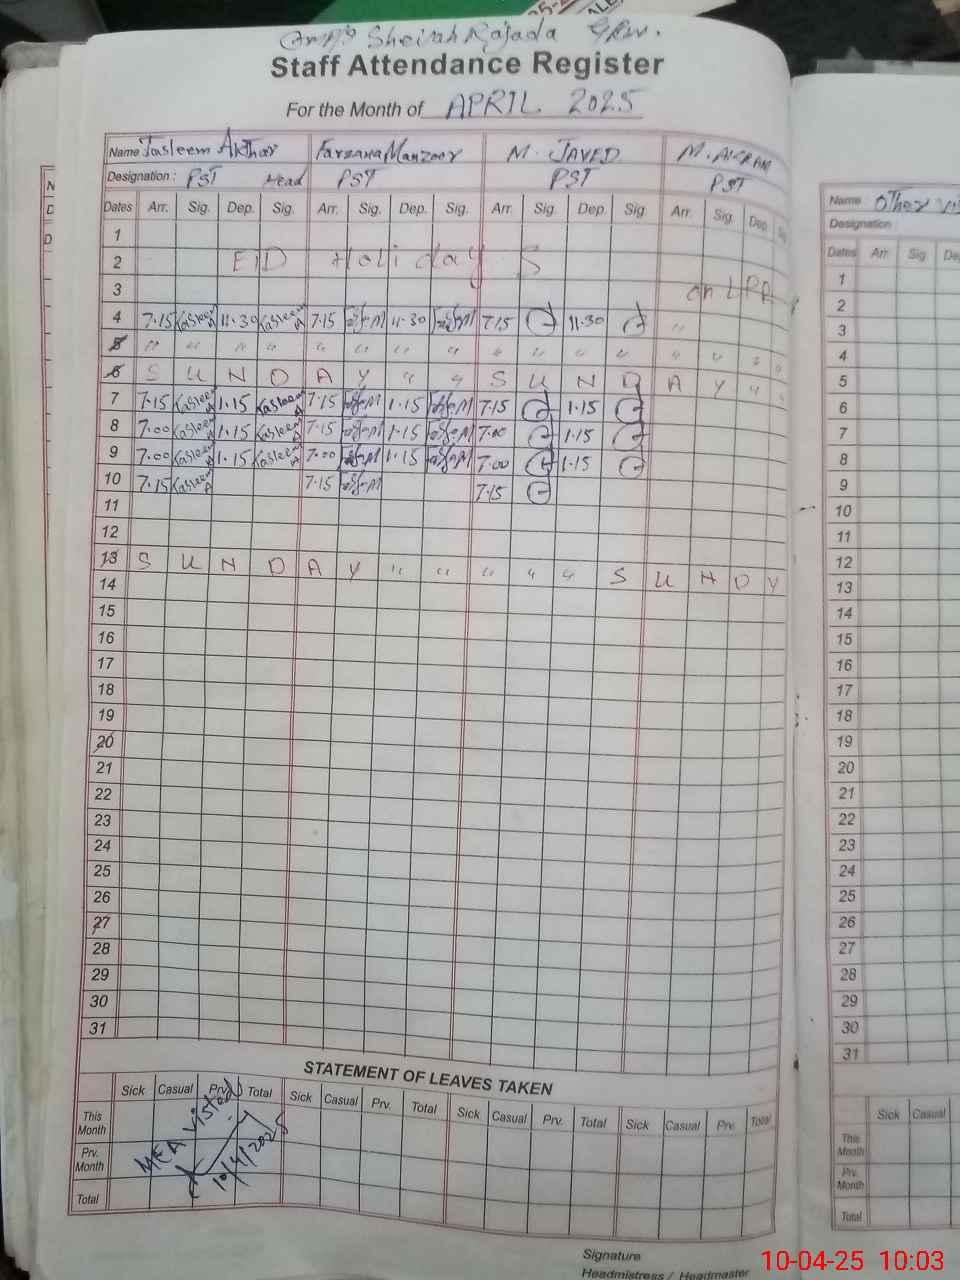 Sheirah Rajada GRW.
Staff Attendance Register
For the Month of APRIL 2025
Name Tasleem Akthar Farzana Manzoor M. JAVED M. AKRAM
Designation : PST Head PST PST PST
Dates Arr. Sig. Dep. Sig. Arr. Sig. Dep. Sig. Arr. Sig. Dep. Sig Arr. Sig. Dep
1
2 EID Holi day S
3 on LPR
4 7.15 Tasleem A 11.30 Tasleem A 7.15 11.30 7.15 11.30 "
5 " " " " " " " " " " " " " " " "
6 S U N D A Y " " S U N D A Y "
7 7.15 Tasleem A 1.15 Tasleem A 7.15 1.15 7.15 1.15
8 7.00 Tasleem A 1.15 Tasleem A 7.15 1.15 7.00 1.15
9 7.00 Tasleem A 1.15 Tasleem A 7.00 1.15 7.00 1.15
10 7.15 Tasleem A 7.15 7.15
11
12
13 S U N D A Y " " " " " S U N D Y
14
15
16
17
18
19
20
21
22
23
24
25
26
27
28
29
30
31
STATEMENT OF LEAVES TAKEN
Sick Casual Prv. Total Sick Casual Prv. Total Sick Casual Prv. Total Sick Casual Prv. Total
This Month
Prv. Month
Total
MEA Visted
10/4/2025
Signature
Headmistress / Headmaster
Name Other
Designation
Dates Arr Sig De
1
2
3
4
5
6
7
8
9
10
11
12
13
14
15
16
17
18
19
20
21
22
23
24
25
26
27
28
29
30
31
Sick Casual
This Month
Prv. Month
Total
10-04-25 10:03